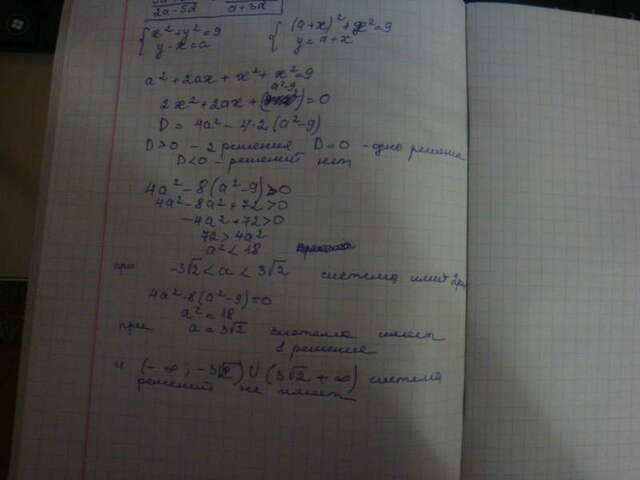 2a-3a a+3a
{ x²+y²=9 { (a+x)²+x²=9
y-x=a y=a+x
a²+2ax+x²+x²=9
a²-9
2x²+2ax+( )=0
D = 4a²-4·2(a²-9)
D>0 - 2 решения D=0 - одно решение
D<0 - решений нет
4a²-8(a²-9)>0
4a²-8a²+72>0
-4a²+72>0
72>4a²
a²<18
при -3√2<a<3√2 система имеет 2р
4a²-8(a²-9)=0
a²=18
при a=3√2 система имеет
1 решение
и (-∞; -3√2)U(3√2 +∞) система
решений не имеет